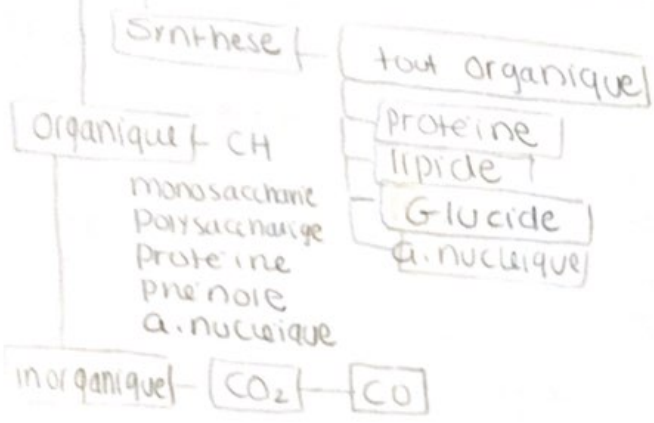 Synthese
tout organique
proteine
lipide
Glucide
a.nucleique
organique CH
monosaccharie
polysaccharige
proteine
phenole
a.nucleique
inorganique CO₂ CO